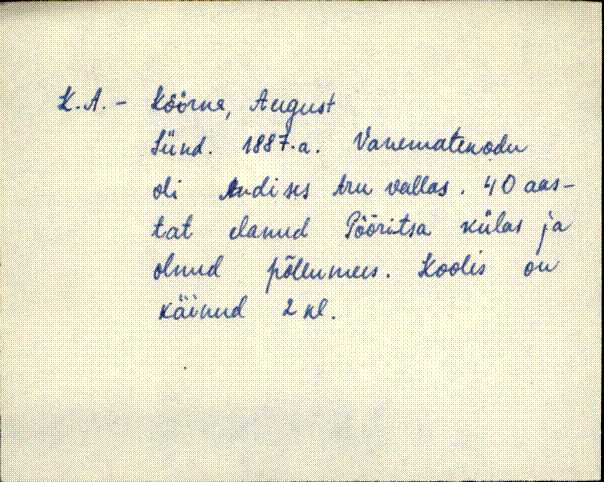 K.A. - Kõõrna, August
Sünd. 1887.a. Vanematekodu
oli Andises Aru vallas. 40 aas-
tat elanud Pööritsa külas ja
olnud põllumees. Koolis on
käinud 2 kl.